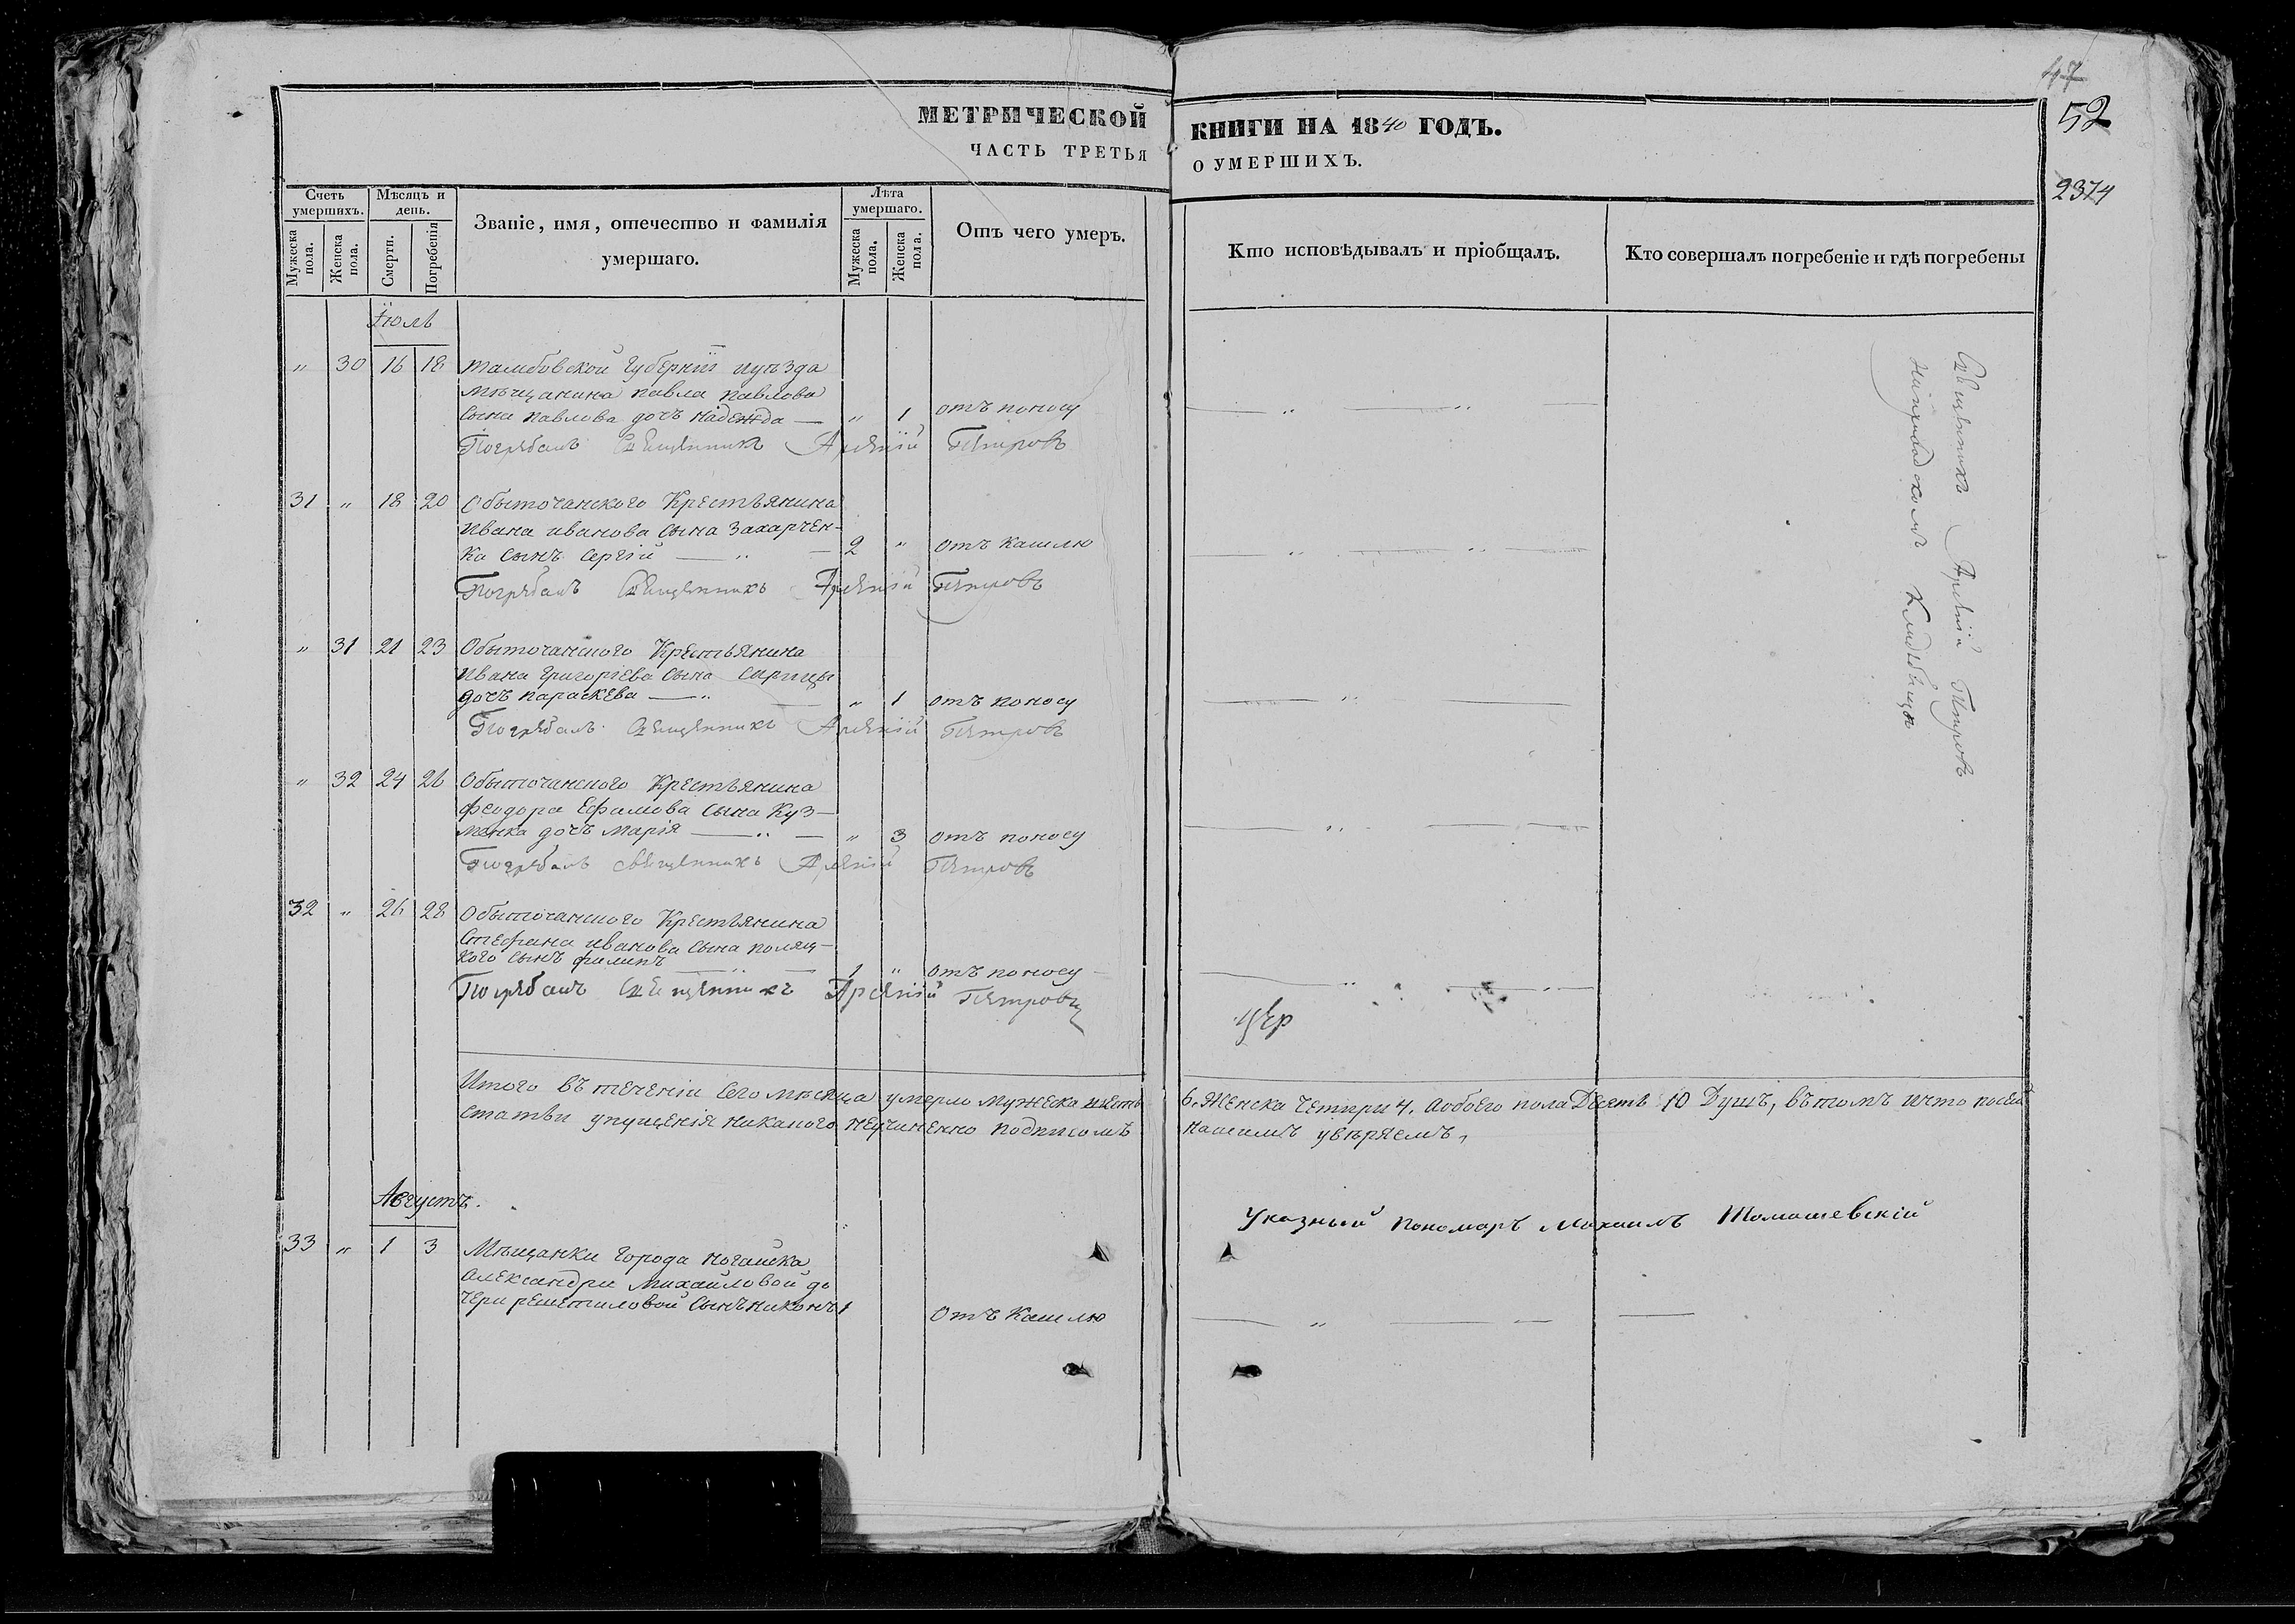 47
52
2374
МЕТРИЧЕСКОЙ КНИГИ НА 1840 ГОДЪ.
ЧАСТЬ ТРЕТЬЯ О УМЕРШИХЪ.
Счетъ умершихъ.
Мужеска пола.
Женска пола.
Мѣсяцъ и день.
Смерти.
Погребенія
Званіе, имя, отечество и фамилія
умершаго.
Лѣта умершаго.
Мужеска пола.
Женска пола.
Отъ чего умеръ.
Кто исповѣдывалъ и пріобщалъ.
Кто совершалъ погребеніе и гдѣ погребены
Іюль
" 30 16 18 Тамбовской Губерніи иуѣзда
мѣщанина павла павлова
сына павлова дочъ надежда — " 1 отъ поносу
Погребалъ Священникъ Арсеній Петровъ
31 " 18 20 Обыточанского Крестьянина
ивана иванова сына Захарчен-
ка сынъ сергій — 2 " отъ кашлю
Погребалъ Священникъ Арсеній Петровъ
" 31 21 23 Обыточанского Крестьянина
ивана григоріева сына
дочъ параскева — " 1 отъ поносу
Погребалъ Священникъ Арсеній Петровъ
" 32 24 26 Обыточанского Крестьянина
феодора Ефимова сына Куз-
менка дочъ Марія — " 3 отъ поносу
Погребалъ священникъ Арсеній Петровъ
32 " 26 28 Обыточанского Крестьянина
стефана иванова сына поляц-
кого сынъ филипъ 1 " отъ поносу
Погребалъ Священникъ Арсеній Петровъ
Священникъ Арсеній Петровъ
на приходскомъ Кладбищѣ
Итого въ теченіи сего мѣсяца умерло мужеска шесть 6. Женска Четыри 4. Аобоего пола Десять 10 Душъ, въ томъ ичто посей
статьи упущенія никакого неучиненно подписомъ нашимъ увѣряемъ,
Указный пономаръ Михаилъ Томашевскій
Августъ.
33 " 1 3 Мѣщанки города ногайска
александри михайловой до
чери решетиловой сынъ никонъ 1 отъ кашлю